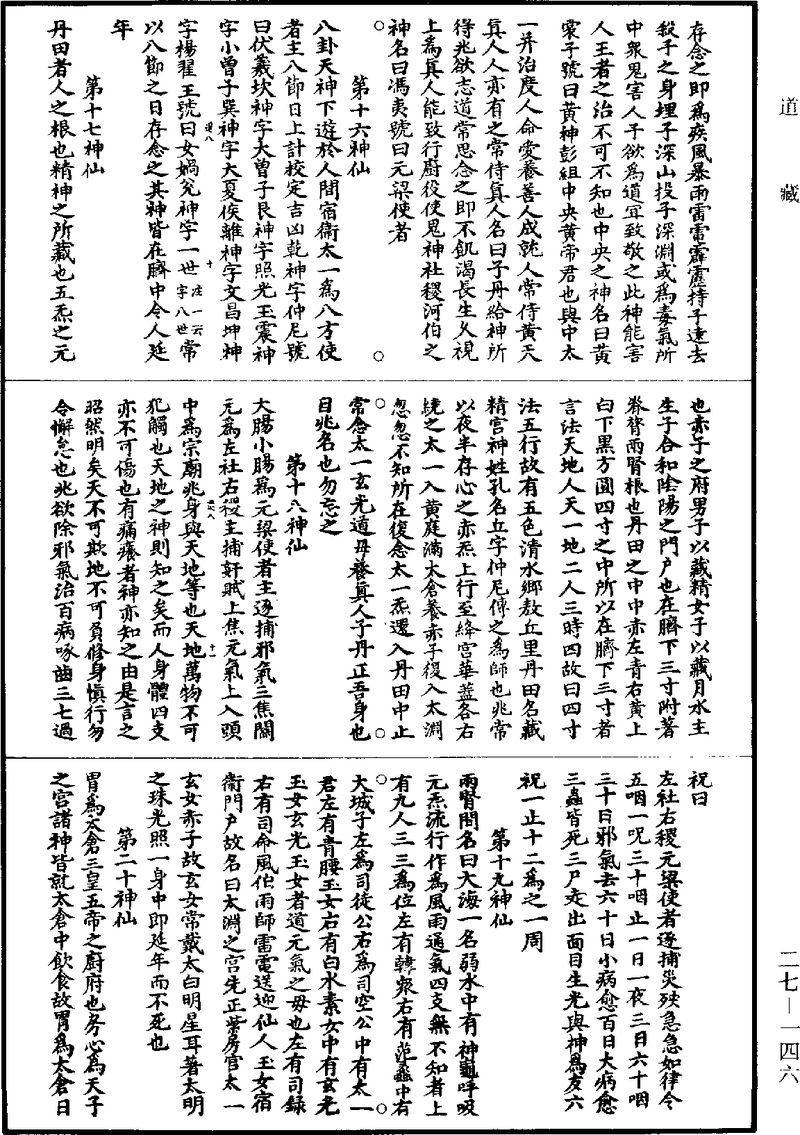 道藏
存念之即為疾風暴雨雷電霹靂持子遠去
殺子之身埋子深山投子深淵或為毒氣所
中眾鬼害人子欲為道宜致敬之此神能害
人王者之治不可不知也中央之神名曰黃
裳子號曰黃神彭祖中央黃帝君也與中太
一并治度人命愛養善人成就人常侍黃天
真人人亦有之常侍真人名曰子丹給神所
得兆欲志道常思念之即不飢渴長生久視
上為真人能致行廚役使鬼神社稷河伯之
神名曰馮夷號曰元梁使者
第十六神仙
八卦天神下遊於人間宿衛太一為八方使
者主八節日上計校定吉凶乾神字仲尼號
曰伏羲坎神字大曾子艮神字照光玉震神
字小曾子巽神字大夏侯離神字文昌坤神
字楊翟王號曰女媧兌神字一世注一云字八世常
以八節之日存念之其神皆在臍中令人延
年
第十七神仙
丹田者人之根也精神之所藏也五炁之元
也赤子之府男子以藏精女子以藏月水主
生子合和陰陽之門戶也在臍下三寸附著
脊膂兩腎根也丹田之中中赤左青右黃上
白下黑方圓四寸之中所以在臍下三寸者
言法天地人天一地二人三時四故曰四寸
法五行故有五色清水鄉敖丘里丹田名藏
精宮神姓孔名丘字仲尼傳之為師也兆常
以夜半存心之赤炁上行至絳宮華蓋各右
繞之太一入黃庭滿太倉養赤子復入太淵
忽忽不知所在復念太一炁還入丹田中止
常念太一玄光道母養真人子丹正吾身也
自兆名也勿忘之
第十八神仙
大腸小腸為元梁使者主逐捕邪氣三焦關
元為左社右稷主捕奸賊上焦元氣上入頭
中為宗廟兆身與天地等也天地萬物不可
犯觸也天地之神則知之矣而人身體四支
亦不可傷也有痛癢者神亦知之由是言之
昭然明矣天不可欺地不可負修身慎行勿
令懈怠也兆欲除邪氣治百病啄齒三七過
祝曰
左社右稷元梁使者逐捕災殃急急如律令
五咽一呪三十咽止一日一夜三日六十咽
三十日邪氣去六十日小病愈百日大病愈
三蟲皆死三尸走出面目生光與神為友六
祝一止十二為之一周
第十九神仙
兩腎間名曰大海一名弱水中有神龜呼吸
元炁流行作為風雨通氣四支無不知者上
有九人三三為位左有韓眾右有范蠡中有
大城子左為司徒公右為司空公中有太一
君左有青腰玉女右有白水素女中有玄光
玉女玄光玉女者道元氣之母也左有司錄
右有司命風伯雨師雷電送迎仙人玉女宿
衛門戶故名曰太淵之宮先正葉房官太一
玄女赤子故玄女常戴太白明星耳著太明
之珠光照一身中即延年而不死也
第二十神仙
胃為太倉三皇五帝之廚府也房心為天子
之宮諸神皆就太倉中飲食故胃為太倉日
二七—一四六